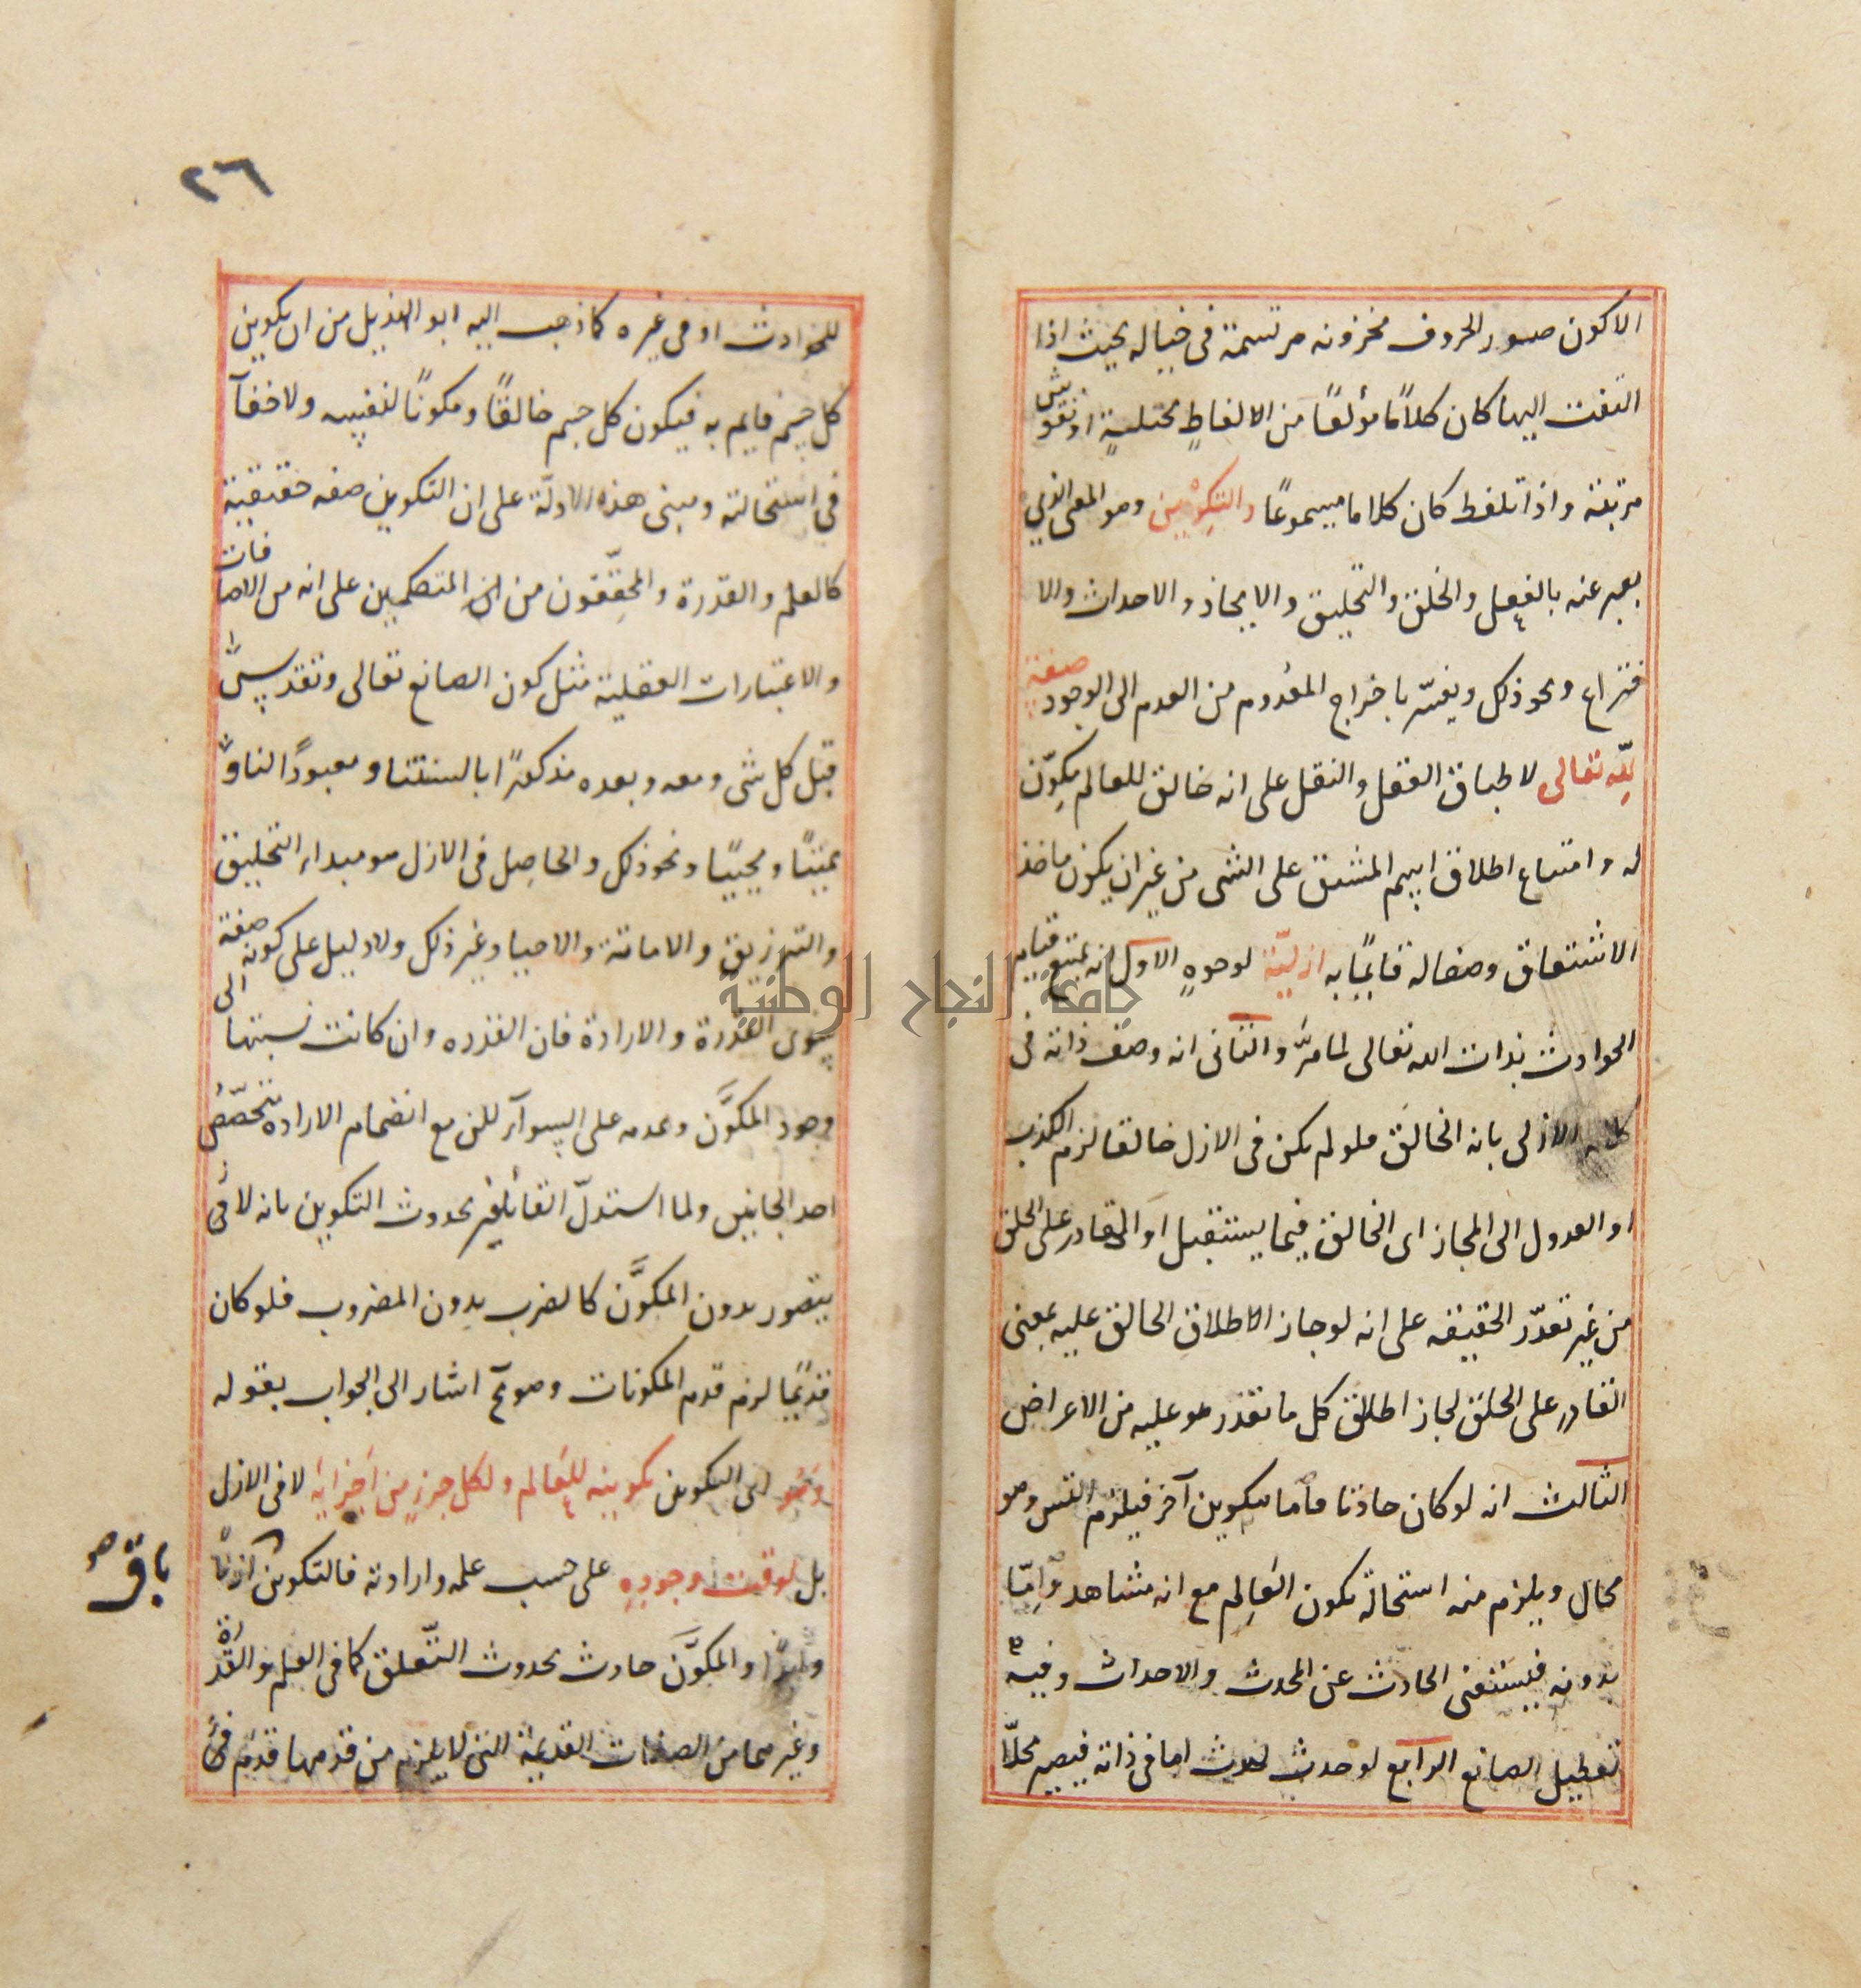 الاكون صور الحروف مخزونه مرتسمة فى خياله بحيث اذا
التفت اليها كان كلامًا مؤلفًا من الالفاظ مختلية او نقوش
مرتبة واذا تلفظ كان كلاما مسموعًا والتكوين وهو المعنى الذي
يعبر عنه بالفعل والخلق والتخليق والايجاد والاحداث والا
ختراع ونحو ذلك ويفسّر باخراج المعدوم من العدم الى الوجود صفة
لله تعالى لاطباق العقل والنقل على انه خالق للعالم مكوّن
له وامتناع اطلاق اسم المشتق على الشى من غير ان يكون ماخذ
الاشتقاق وصفا له قايمًا به ازليّة لوجوهٍ الاول انه يمتنع قيام
الحوادث بذات الله تعالى لما مرَّ والثانى انه وصف ذاته فى
كلامه الازلى بانه الخالق فلو لم يكن فى الازل خالقا لزم الكذب
او العدول الى المجاز اى الخالق فيما يستقبل او القادر على الخلق
من غير تعذّر الحقيقه على انه لو جاز الاطلاق الخالق عليه بمعنى
القادر على الخلق لجاز اطلاق كل ما تقدر هو عليه من الاعراض
الثالث انه لو كان حادثا فاما بتكوين آخر فيلزم التس وهو
محال ويلزم منه استحالة تكون العَالِم مع انه مشاهد واِمّا
بدونه فيستغنى الحادث عن المحدث والاحداث وفيه
تعطيل الصانع الرابع لو حدث لحدث اما فى ذاته فيصير محلّا
٢٦
للحوادث او فى غيره كما ذهب اليه ابو الهذيل من ان تكوين
كل جسم قايم به فيكون كل جسم خالقًا ومكونًا لنفسه ولا خفآ
فى استحالته ومبنى هذه الادلّة على ان التكوين صفه حقيقية
كالعلم والقدرة والمحقّقون من المتكلمين على انه من الاضافات
والاعتبارات العقلية مثل كون الصانع تعالى وتقدس
قبل كل شى ومعه وبعده مذكورًا بالسنتنا ومعبودًا لنا و
مميتًا ومحييًا ونحو ذلك والحاصِل فى الازل هو مبداء التخليق
والترزيق والاماتة والاحيا وغير ذلك ولا دليل على كونه صفة
سوى القدرة والارادة فان القدره وان كانت نسبتها الى
وجود المكوَّن وعدمه على السوآ لكن مع انضمام الاراده يتخصّص
احد الجانبين ولما استدلّ القائلون بحدوث التكوين بانه لا
يتصور بدون المكوَّن كالضرب بدون المضروب فلو كان
قديمًا لزم قدم المكونات وهو مح اشار الى الجواب بقوله
وهو اى التكوين تكوينه للعَالم ولكل جزءٍ من اَجزايه لا فى الازل
بل لوقت وجوده على حسب علمه وارادته فالتكوين
باق
والمكوَّن حادث بحدوث التّعلق كما فى العلم والقدرة
وغيرهما من الصفات القديمة التى لا يلزم من قدمها قدم
جامعة النجاح الوطنية